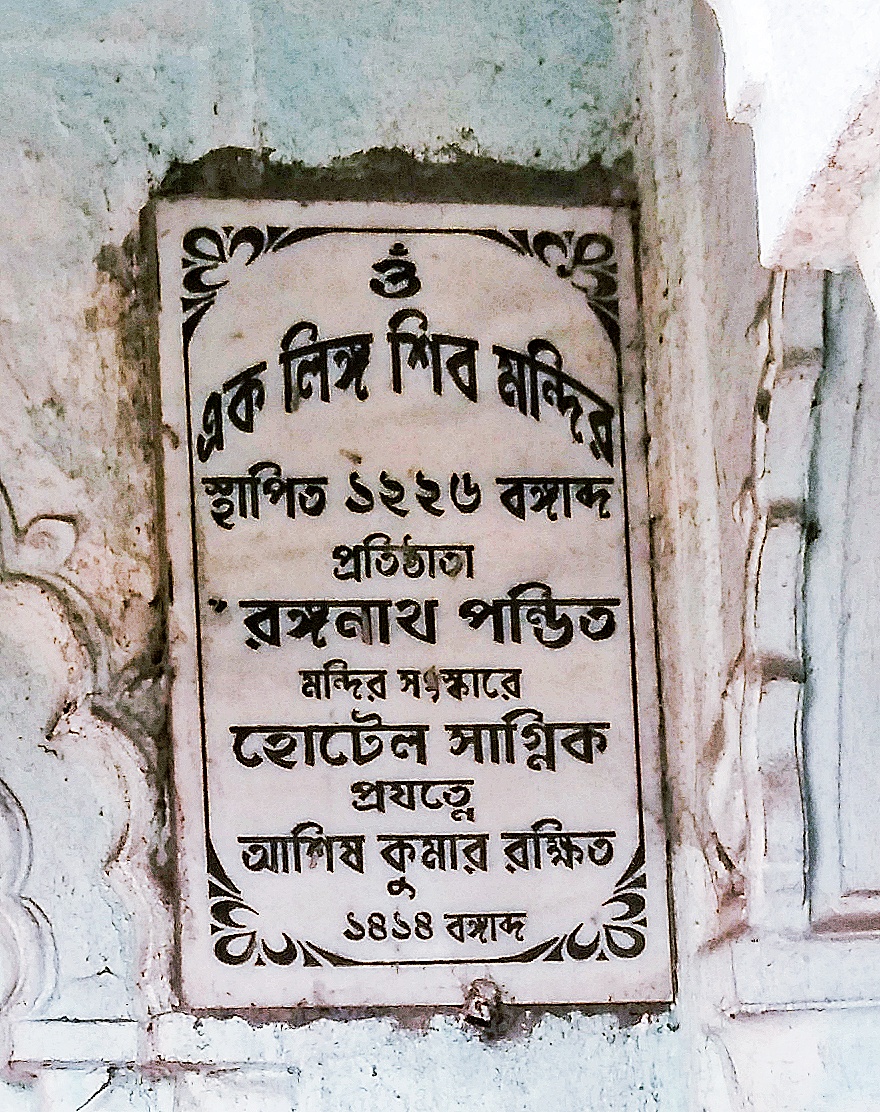 ওঁ
এক লিঙ্গ শিব মন্দির
স্থাপিত ১২২৬ বঙ্গাব্দ
প্রতিষ্ঠাতা
রঙ্গনাথ পন্ডিত
মন্দির সংস্কারে
হোটেল সাগ্নিক
প্রযত্নে
আশিষ কুমার রক্ষিত
১৪১৪ বঙ্গাব্দ